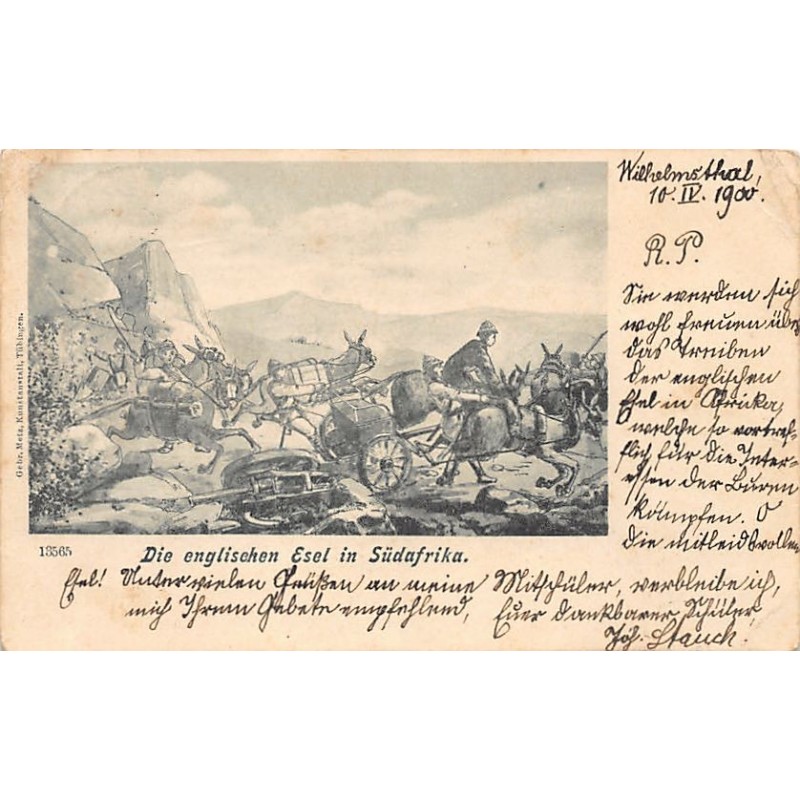 Wilhelmsthal,
10. IV. 1900.
R. P.
Sie werden sich
wohl freuen über
das Treiben
der englischen
Esel in Afrika,
welche so vortref-
flich für die Inter-
essen der Buren
kämpfen. O
die mitleidsvollen
Gebr. Metz, Kunstanstalt, Tübingen.
13565
Die englischen Esel in Südafrika.
Esel! Unter vielen Grüßen an meine Mitschüler, verbleibe ich,
mich Ihrem Gebete empfehlend, Euer dankbarer Schüler,
Joh. Stauch.